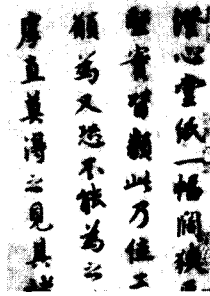 澄心堂紙一幅闊狹
堅實皆類此乃佳工
願為又恐不能為之
厚直莫得之見其楮